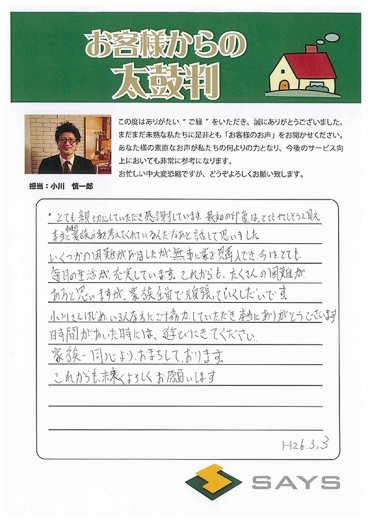 お客様からの
太鼓判
この度はありがたい“ご縁”をいただき、誠にありがとうございました。
まだまだ未熟な私たちに是非とも「お客様のお声」をお聞かせください。
あなた様の素直なお声が私たちの何よりの力となり、今後のサービス向
上においても非常に参考になります。
お忙しい中大変恐縮ですが、どうぞよろしくお願い致します。
担当：小川　慎一郎
・とても親切にしていただき感謝しています。最初の印象は、とてもやさしそうに見え
家族の事を考えてくれているんだなあと話して思いました
いくつかの困難がありましたが無事に家を購入でき、今はとても
毎日の生活が充実しています。これからも、たくさんの困難が
あると思いますが、家族全員で頑張っていくしだいです。
小川さんはじめ、いろんな方にご協力していただき本当にありがとうございます
日時間があいた時には、遊びにきてください。
家族一同心よりおまちしております。
これからも末永くよろしくお願いします
H26.3.3
SAYS